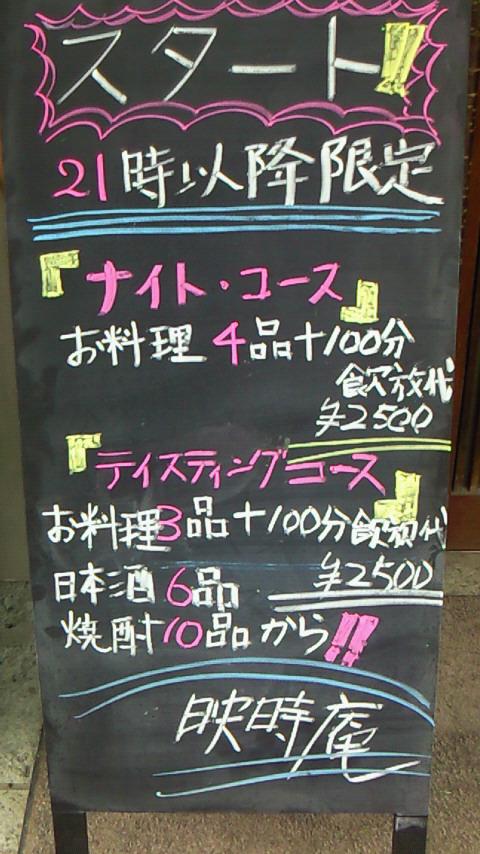 スタート!!
21時以降限定
『ナイト・コース』
お料理4品+100分
飲放代
¥2500
『テイスティングコース』
お料理3品+100分飲放代
¥2500
日本酒6品
焼酎10品から!!
映時庵